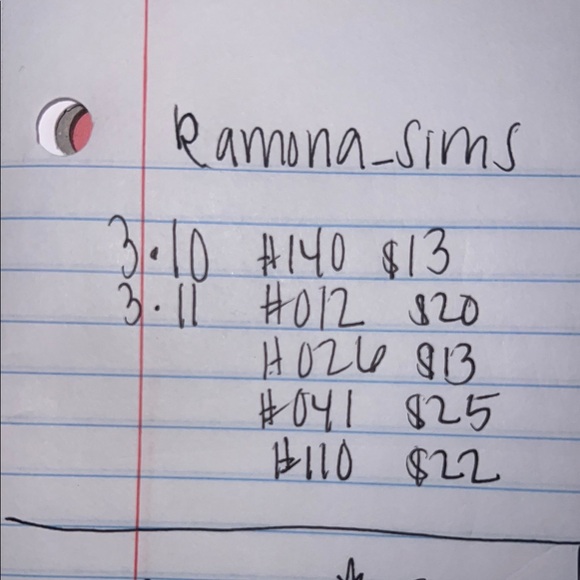 Ramona_sims
3.10 #140 $13
3.11 #012 $20
#026 $13
#041 $25
#110 $22